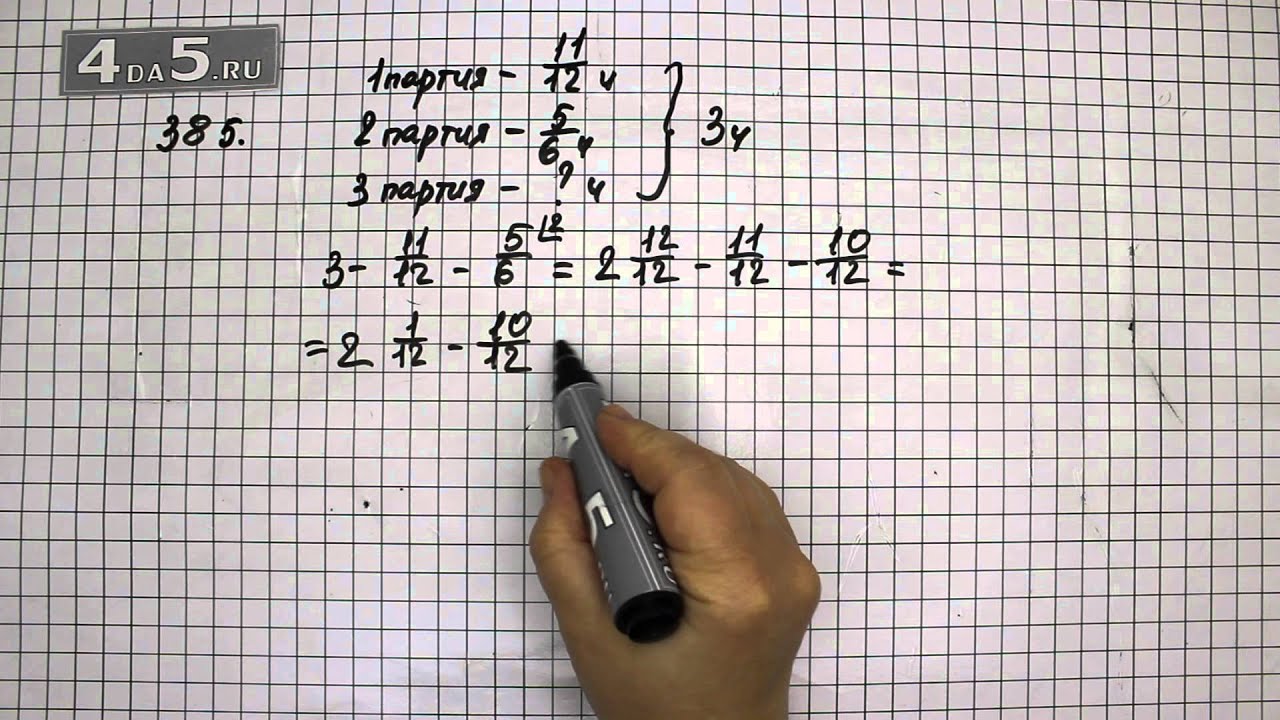 4DA5.RU
1 партия - 11/12 ч
385. 2 партия - 5/6 ч } 3ч
3 партия - ? ч
3 - 11/12 - 5/6 |2 = 2 12/12 - 11/12 - 10/12 =
= 2 1/12 - 10/12
5